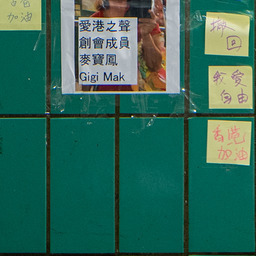 加油
愛港之聲
創會成員
麥寶鳳
Gigi Mak
撤
回
我愛
自由
香港
加油